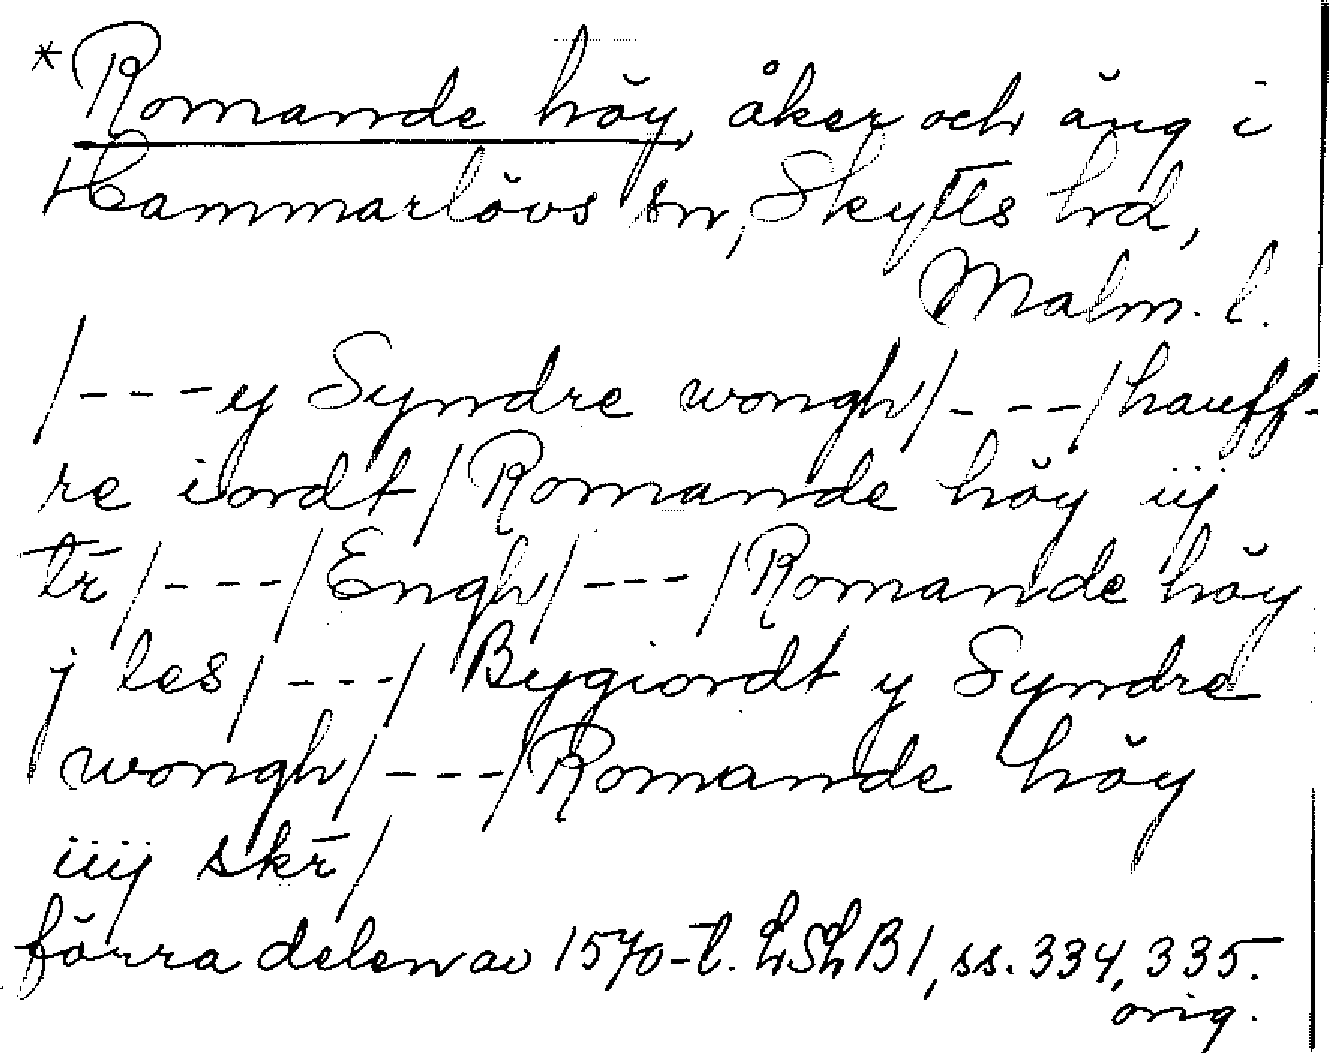 *Romande höy, åker och äng i
Hammarlövs sn, Skytts hd,
Malm. l.
/---y Syndre wongh/---/hauff-
re iordt/Romande höy iij
tr̄/---/Engh/---/Romande höy
j les/---/Bygiordt y Syndre
wongh/---/Romande höy
iiij skr̄/
förra delen av 1570-t. LSLB1, ss. 334, 335.
orig.